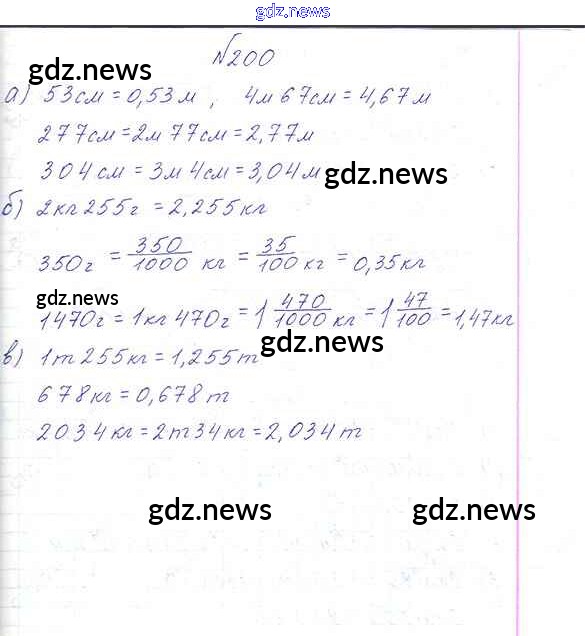 gdz.news
№200
gdz.news
а) 53см = 0,53м, 4м 67см = 4,67м
277см = 2м 77см = 2,77м
304см = 3м 4см = 3,04м
gdz.news
б) 2кг 255г = 2,255кг
350г = 350/1000 кг = 35/100 кг = 0,35кг
gdz.news
1470г = 1кг 470г = 1 470/1000 кг = 1 47/100 = 1,47кг
gdz.news
в) 1т 255кг = 1,255т
678кг = 0,678т
2034кг = 2т 34кг = 2,034т
gdz.news gdz.news